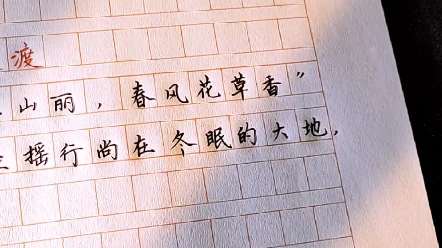 渡
山丽，春风花草香”
摇行尚在冬眠的大地，